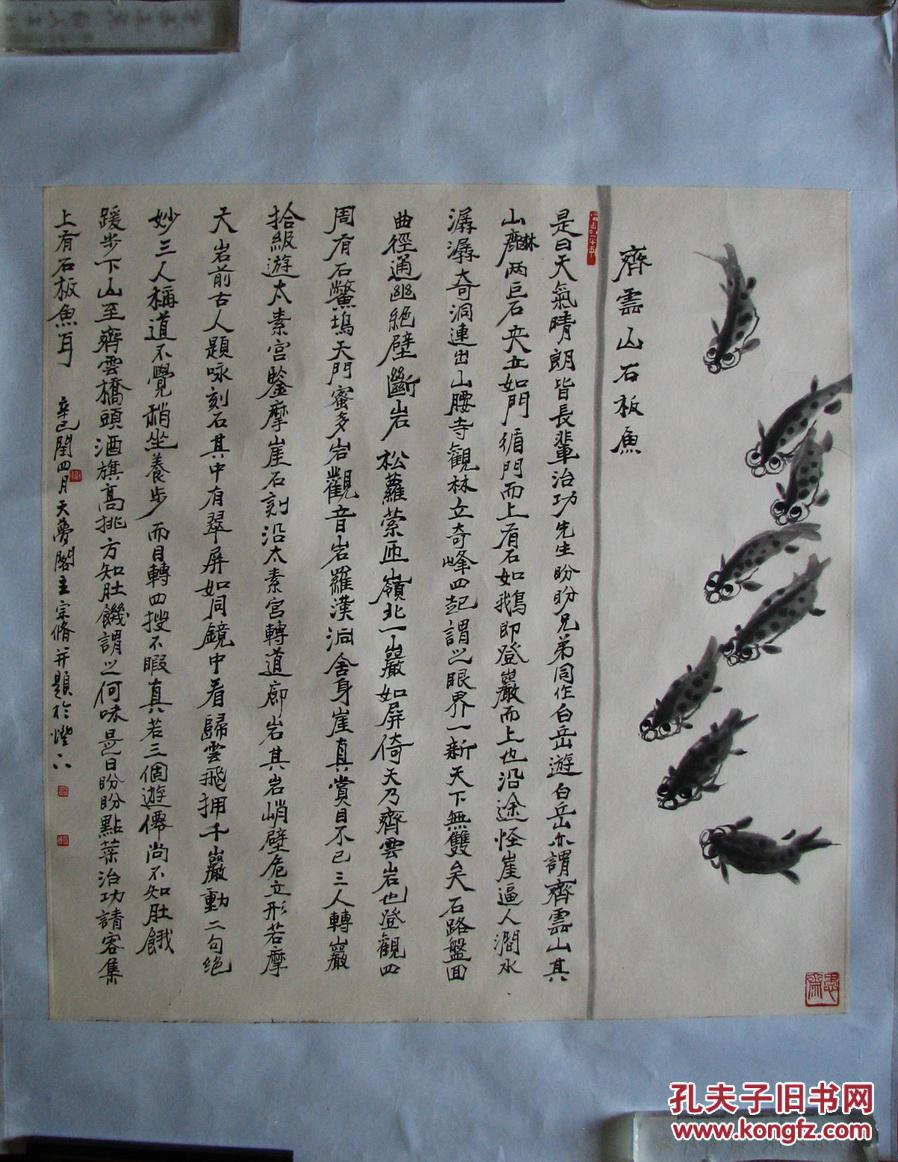 齊雲山石板魚
是日天氣晴朗皆長輩治功先生盼盼兄弟同作白岳遊白岳亦謂齊雲山其
山麓林兩巨石夾立如門循門而上有石如鵝即登巖而上也沿途怪崖逼人澗水
潺潺奇洞連出山腰寺觀林立奇峰四起謂之眼界一新天下無雙矣石路盤回
曲徑通幽絕壁斷岩松蘿縈匝嶺北一巖如屏倚天乃齊雲岩也登觀四
周有石鱉塢天門蜜多岩觀音岩羅漢洞舍身崖真賞目不已三人轉巖
拾級遊太素宮鑒摩崖石刻沿太素宮轉道廊岩其岩峭壁危立形若摩
天岩前古人題咏刻石其中有翠屏如同鏡中看歸雲飛拥千巖動二句绝
妙三人稱道不覺稍坐養步而目轉四搜不暇真若三個遊僊尚不知肚餓
踱步下山至齊雲橋頭酒旗高挑方知肚饑謂之何味是日盼盼點菜治功請客集
上有石板魚耳
辛巳閏四月天夢閣主宗脩并題於燈下
孔夫子旧书网
www.kongfz.com